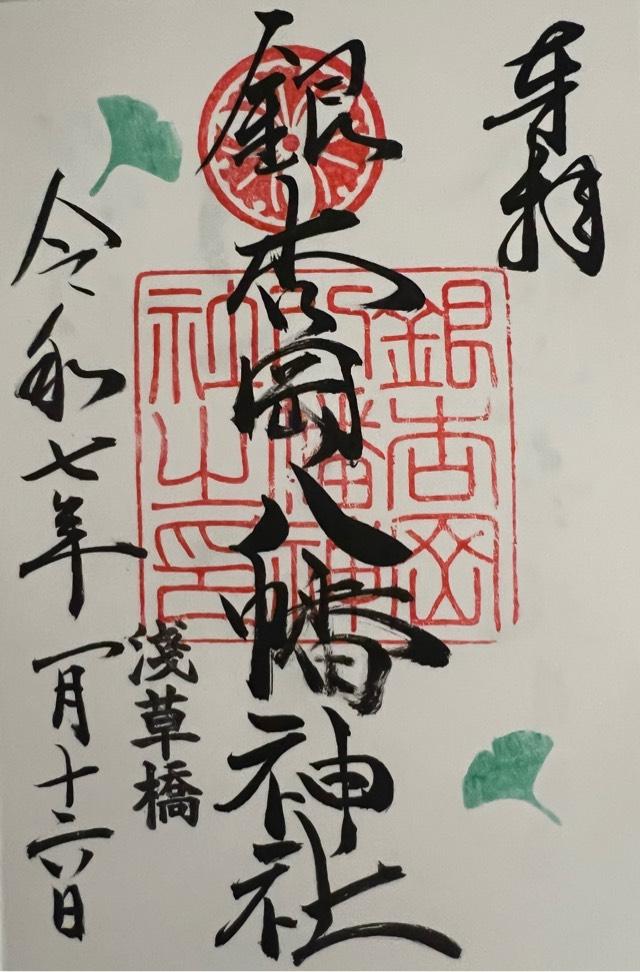 奉拝
銀杏岡八幡神社
淺草橋
令和七年一月十六日
銀杏岡
八幡神
社之印